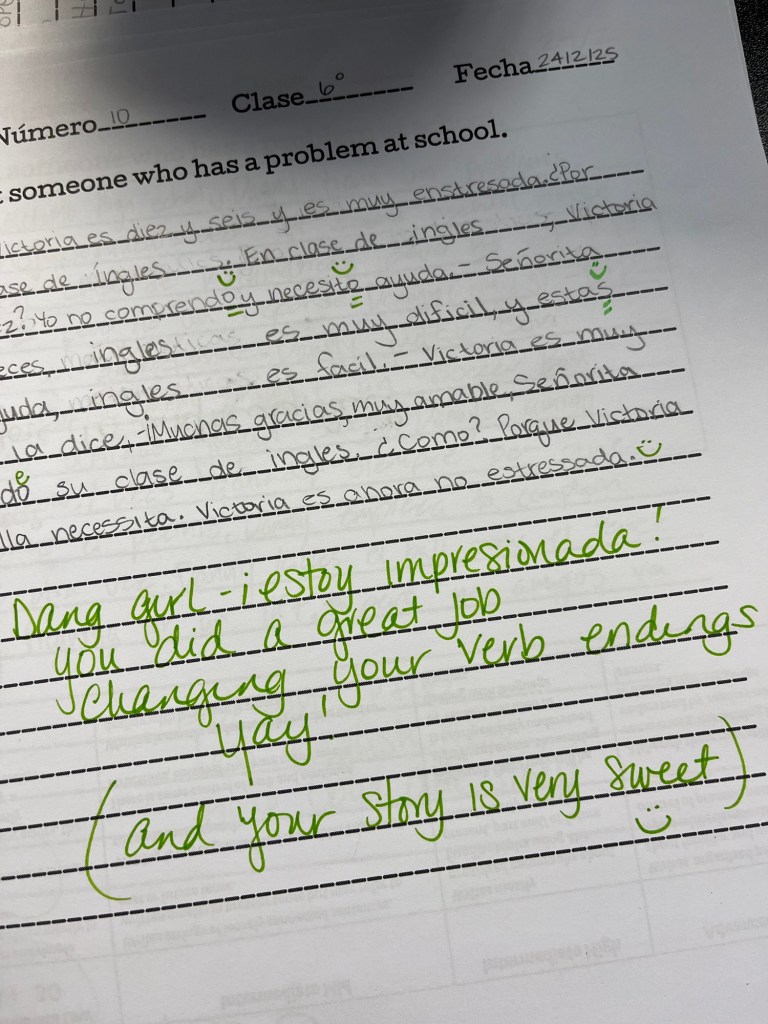 Número 10 Clase 6° Fecha 24/2/25
someone who has a problem at school.
Victoria es diez y seis y es muy enstresada. ¿Por
ase de íngles . En clase de ingles , Victoria
ez? Yo no comprendo y necesito ayuda. - Señorita
eces, ingles es muy dificil, y estas
yuda, ingles es facil. - Victoria es muy
la dice, -¡Muchas gracias, muy amable, Señorita
do e su clase de ingles. ¿Como? Porque Victoria
lla necessita. Victoria es ahora no estressada.
Dang gurl - ¡estoy impresionada!
you did a great job
changing your verb endings
yay!
(and your story is very sweet)